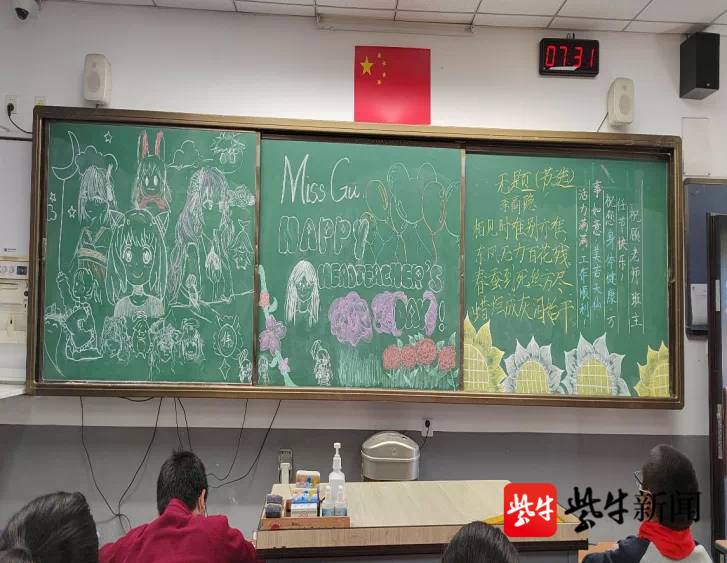 07:31
Miss Gu
HAPPY
HEADTEACHER'S
DAY!
无题(节选)
李商隐
相见时难别亦难
东风无力百花残
春蚕到死丝方尽
蜡炬成灰泪始干
祝顾老师班主
任节快乐!
祝您身体健康 万
事如意 美若天仙
活力满满 工作顺利
紫牛
紫牛新闻